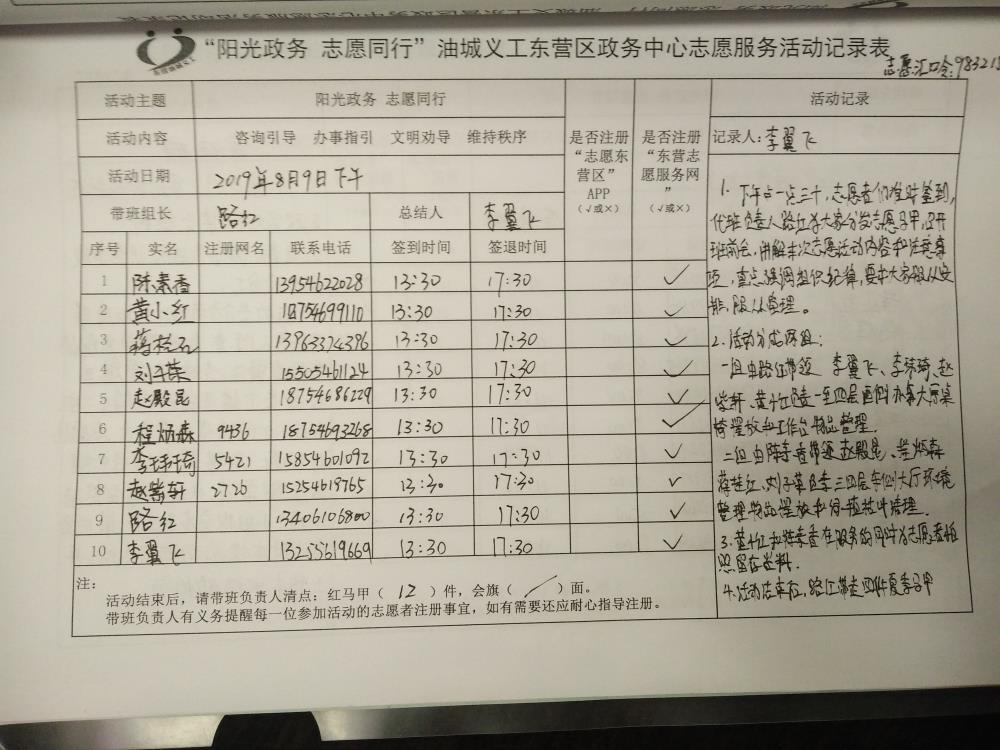 “阳光政务 志愿同行”油城义工东营区政务中心志愿服务活动记录表
志愿汇口令:98321
活动主题 阳光政务 志愿同行
活动内容 咨询引导 办事指引 文明劝导 维持秩序
活动日期 2019年8月9日下午
带班组长 路红 总结人 李翼飞
是否注册“志愿东营区”APP（√或×）
是否注册“东营志愿服务网”（√或×）
序号 实名 注册网名 联系电话 签到时间 签退时间
1 陈素香 13954622028 13:30 17:30 ✓
2 黄小红 18754699110 13:30 17:30 ✓
3 蒋桂红 13963374396 13:30 17:30 ✓
4 刘子荣 15505461124 13:30 17:30 ✓
5 赵殿昆 18754686229 13:30 17:30 ✓
6 程炳森 9436 18754693268 13:30 17:30 ✓
7 李玮琦 5421 15854601092 13:30 17:30 ✓
8 赵紫轩 2726 15254619765 13:30 17:30 ✓
9 路红 13406106800 13:30 17:30 ✓
10 李翼飞 13255619669 13:30 17:30 ✓
注：
活动结束后，请带班负责人清点：红马甲（ 12 ）件，会旗（ ／ ）面。
带班负责人有义务提醒每一位参加活动的志愿者注册事宜，如有需要还应耐心指导注册。
活动记录
记录人：李翼飞
1. 下午一点三十，志愿者们准时签到，
代班负责人路红为大家分发志愿马甲，召开
班前会，讲解本次志愿活动内容和注意事
项，重点强调组织纪律，要求大家服从安
排，服从管理。
2. 活动分成两组：
一组由路红带领 李翼飞、李玮琦、赵
紫轩、黄小红负责一至四层西侧办事大厅桌
椅摆放和工作台物品整理.
二组由陈素香带领赵殿昆、程炳森
蒋桂红、刘子荣负责三四层东侧大厅环境
整理物品摆放和绿植枝叶清理.
3. 黄小红和陈素香在服务的同时为志愿者拍
照留存资料.
4. 活动结束后，路红带走四件夏季马甲